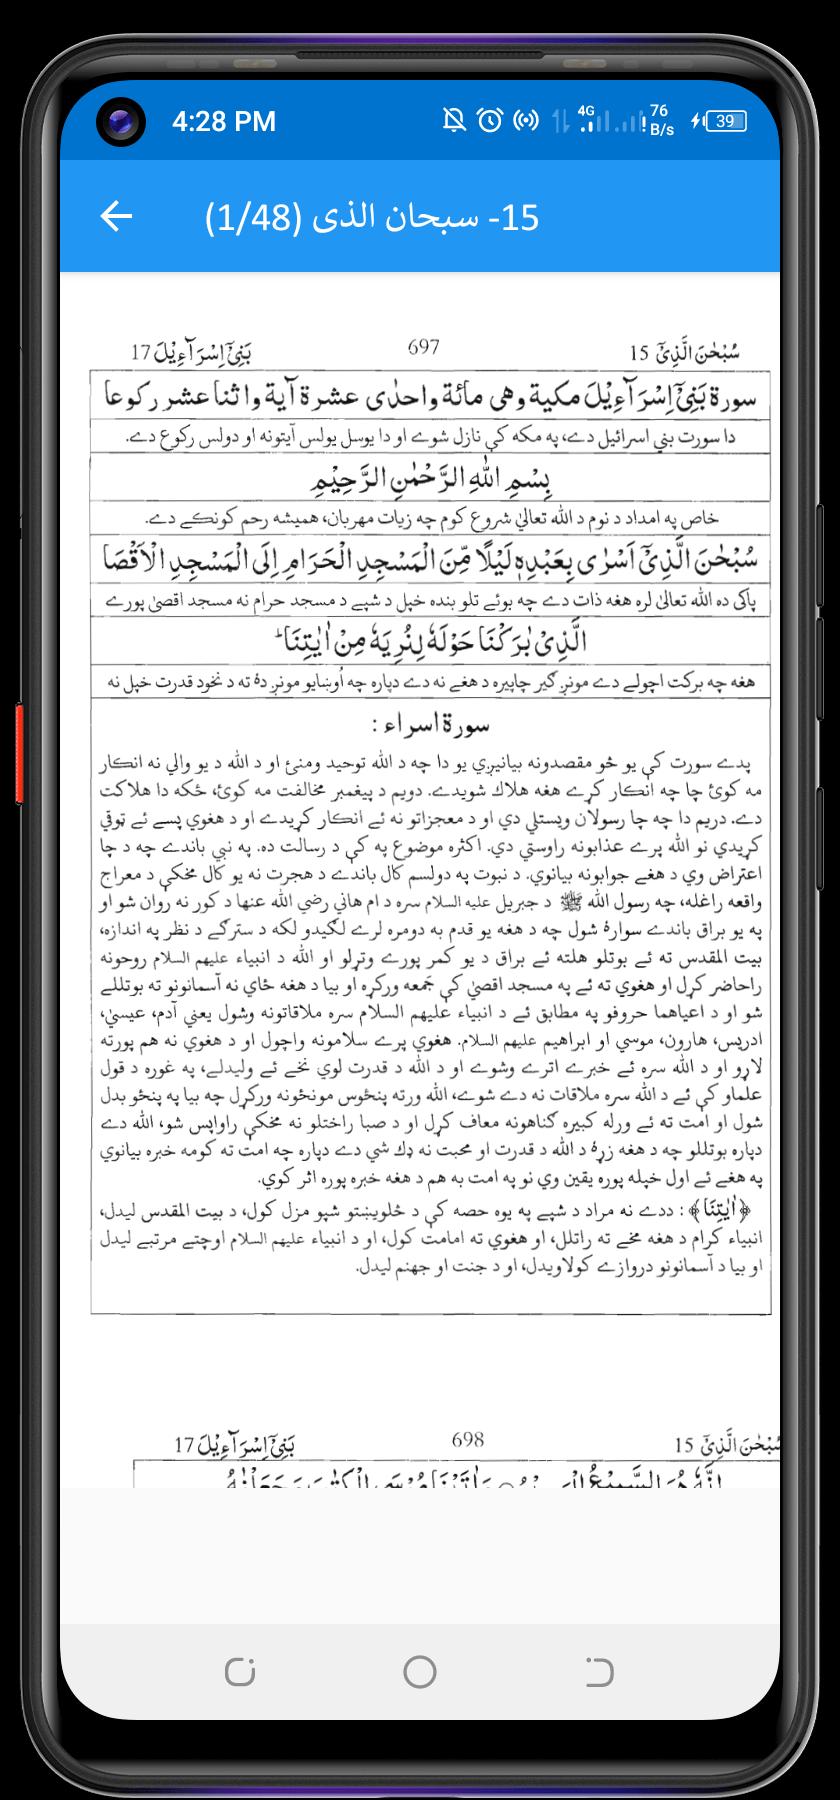 4:28 PM
4G
76 B/s
39
15- سبحان الذی (1/48)
سُبْحٰنَ الَّذِیْۤ 15
697
بَنِیْۤ اِسْرَآءِیْلَ 17
سورة بَنِیْۤ اِسْرَآءِیْلَ مکیة وهی مائة واحدٰی عشرة آیة واثنا عشر رکوعا
دا سورت بني اسرائیل دے، په مکه کې نازل شوے او دا یوسل یولس آیتونه او دولس رکوع دے.
بِسْمِ اللّٰهِ الرَّحْمٰنِ الرَّحِیْمِ
خاص په امداد د نوم د الله تعالیٰ شروع کوم چه زیات مهربان، همیشه رحم کونکے دے.
سُبْحٰنَ الَّذِیْۤ اَسْرٰی بِعَبْدِهٖ لَیْلًا مِّنَ الْمَسْجِدِ الْحَرَامِ اِلَی الْمَسْجِدِ الْاَقْصَا
پاکی ده الله تعالیٰ لره هغه ذات دے چه بوئے تلو بنده خپل د شپے د مسجد حرام نه مسجد اقصیٰ پورے
الَّذِیْ بٰرَکْنَا حَوْلَهٗ لِنُرِیَهٗ مِنْ اٰیٰتِنَا ؕ
هغه چه برکت اچولے دے مونږ ګیر چاپیره د هغے نه دے دپاره چه اُوښایو مونږ دهٔ ته د نخود قدرت خپل نه
سورة اسراء :
پدے سورت کې یو څو مقصدونه بیانیږي یو دا چه د الله توحید ومنئ او د الله د یو والي نه انکار
مه کوئ چا چه انکار کړے هغه هلاك شویدے. دویم د پیغمبر مخالفت مه کوئ، ځکه دا هلاکت
دے. دریم دا چه چا رسولان ویستلي دي او د معجزاتو نه ئے انکار کړیدے او د هغوي پسے ئے ټوقي
کړیدي نو الله پرے عذابونه راوستي دي. اکثره موضوع په کې د رسالت ده. په نبي باندے چه د چا
اعتراض وي د هغے جوابونه بیانوي. د نبوت په دولسم کال باندے د هجرت نه یو کال مخکې د معراج
واقعه راغله، چه رسول الله ﷺ د جبریل علیه السلام سره د ام هاني رضي الله عنها د کور نه روان شو او
په یو براق باندے سوارهٔ شول چه د هغه یو قدم به دومره لرے لګیدو لکه د سترګے د نظر په اندازه،
بیت المقدس ته ئے بوتلو هلته ئے براق د یو کمر پورے وتړلو او الله د انبیاء علیهم السلام روحونه
راحاضر کړل او هغوي ته ئے په مسجد اقصیٰ کې جمعه ورکړه او بیا د هغه ځای نه آسمانونو ته بوتللے
شو او د اعیاهما حروفو په مطابق ئے د انبیاء علیهم السلام سره ملاقاتونه وشول یعني آدم، عیسیٰ،
ادریس، هارون، موسي او ابراهیم علیهم السلام. هغوي پرے سلامونه واچول او د هغوي نه هم پورته
لاړو او د الله سره ئے خبرے اترے وشوے او د الله د قدرت لوي نخے ئے ولیدلے، په غوره د قول
علماو کې ئے د الله سره ملاقات نه دے شوے، الله ورته پنځوس مونځونه ورکړل چه بیا په پنځو بدل
شول او امت ته ئے ورله کبیره ګناهونه معاف کړل او د صبا راختلو نه مخکې راواپس شو، الله دے
دپاره بوتللو چه د هغه زړهٔ د الله د قدرت او محبت نه ډك شي دے دپاره چه امت ته کومه خبره بیانوي
په هغے ئے اول خپله پوره یقین وي نو په امت به هم د هغه خبره پوره اثر کوي.
﴿اٰیٰتِنَا﴾: ددے نه مراد د شپے په یوه حصه کې د څلویښتو شپو مزل کول، د بیت المقدس لیدل،
انبیاء کرام د هغه مخے ته راتلل، او هغوي ته امامت کول، او د انبیاء علیهم السلام اوچتے مرتبے لیدل
او بیا د آسمانونو دروازے کولاویدل، او د جنت او جهنم لیدل.
سُبْحٰنَ الَّذِیْۤ 15
698
بَنِیْۤ اِسْرَآءِیْلَ 17